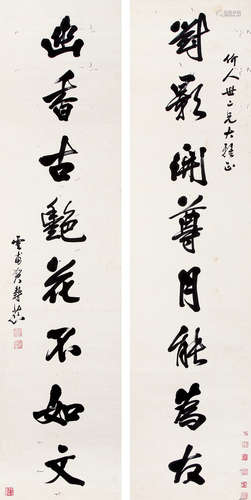 竹人世二兄大雅正
對影開尊月能為友
幽香古艷花不如文
雲甫賀壽慈